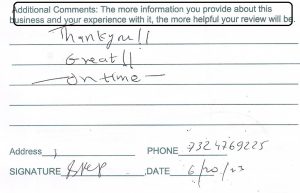 Additional Comments: The more information you provide about this
business and your experience with it, the more helpful your review will be.
Thankyou!!
Great!!
— on time —
Address
PHONE 7324769225
SIGNATURE ,DATE 6/20/23